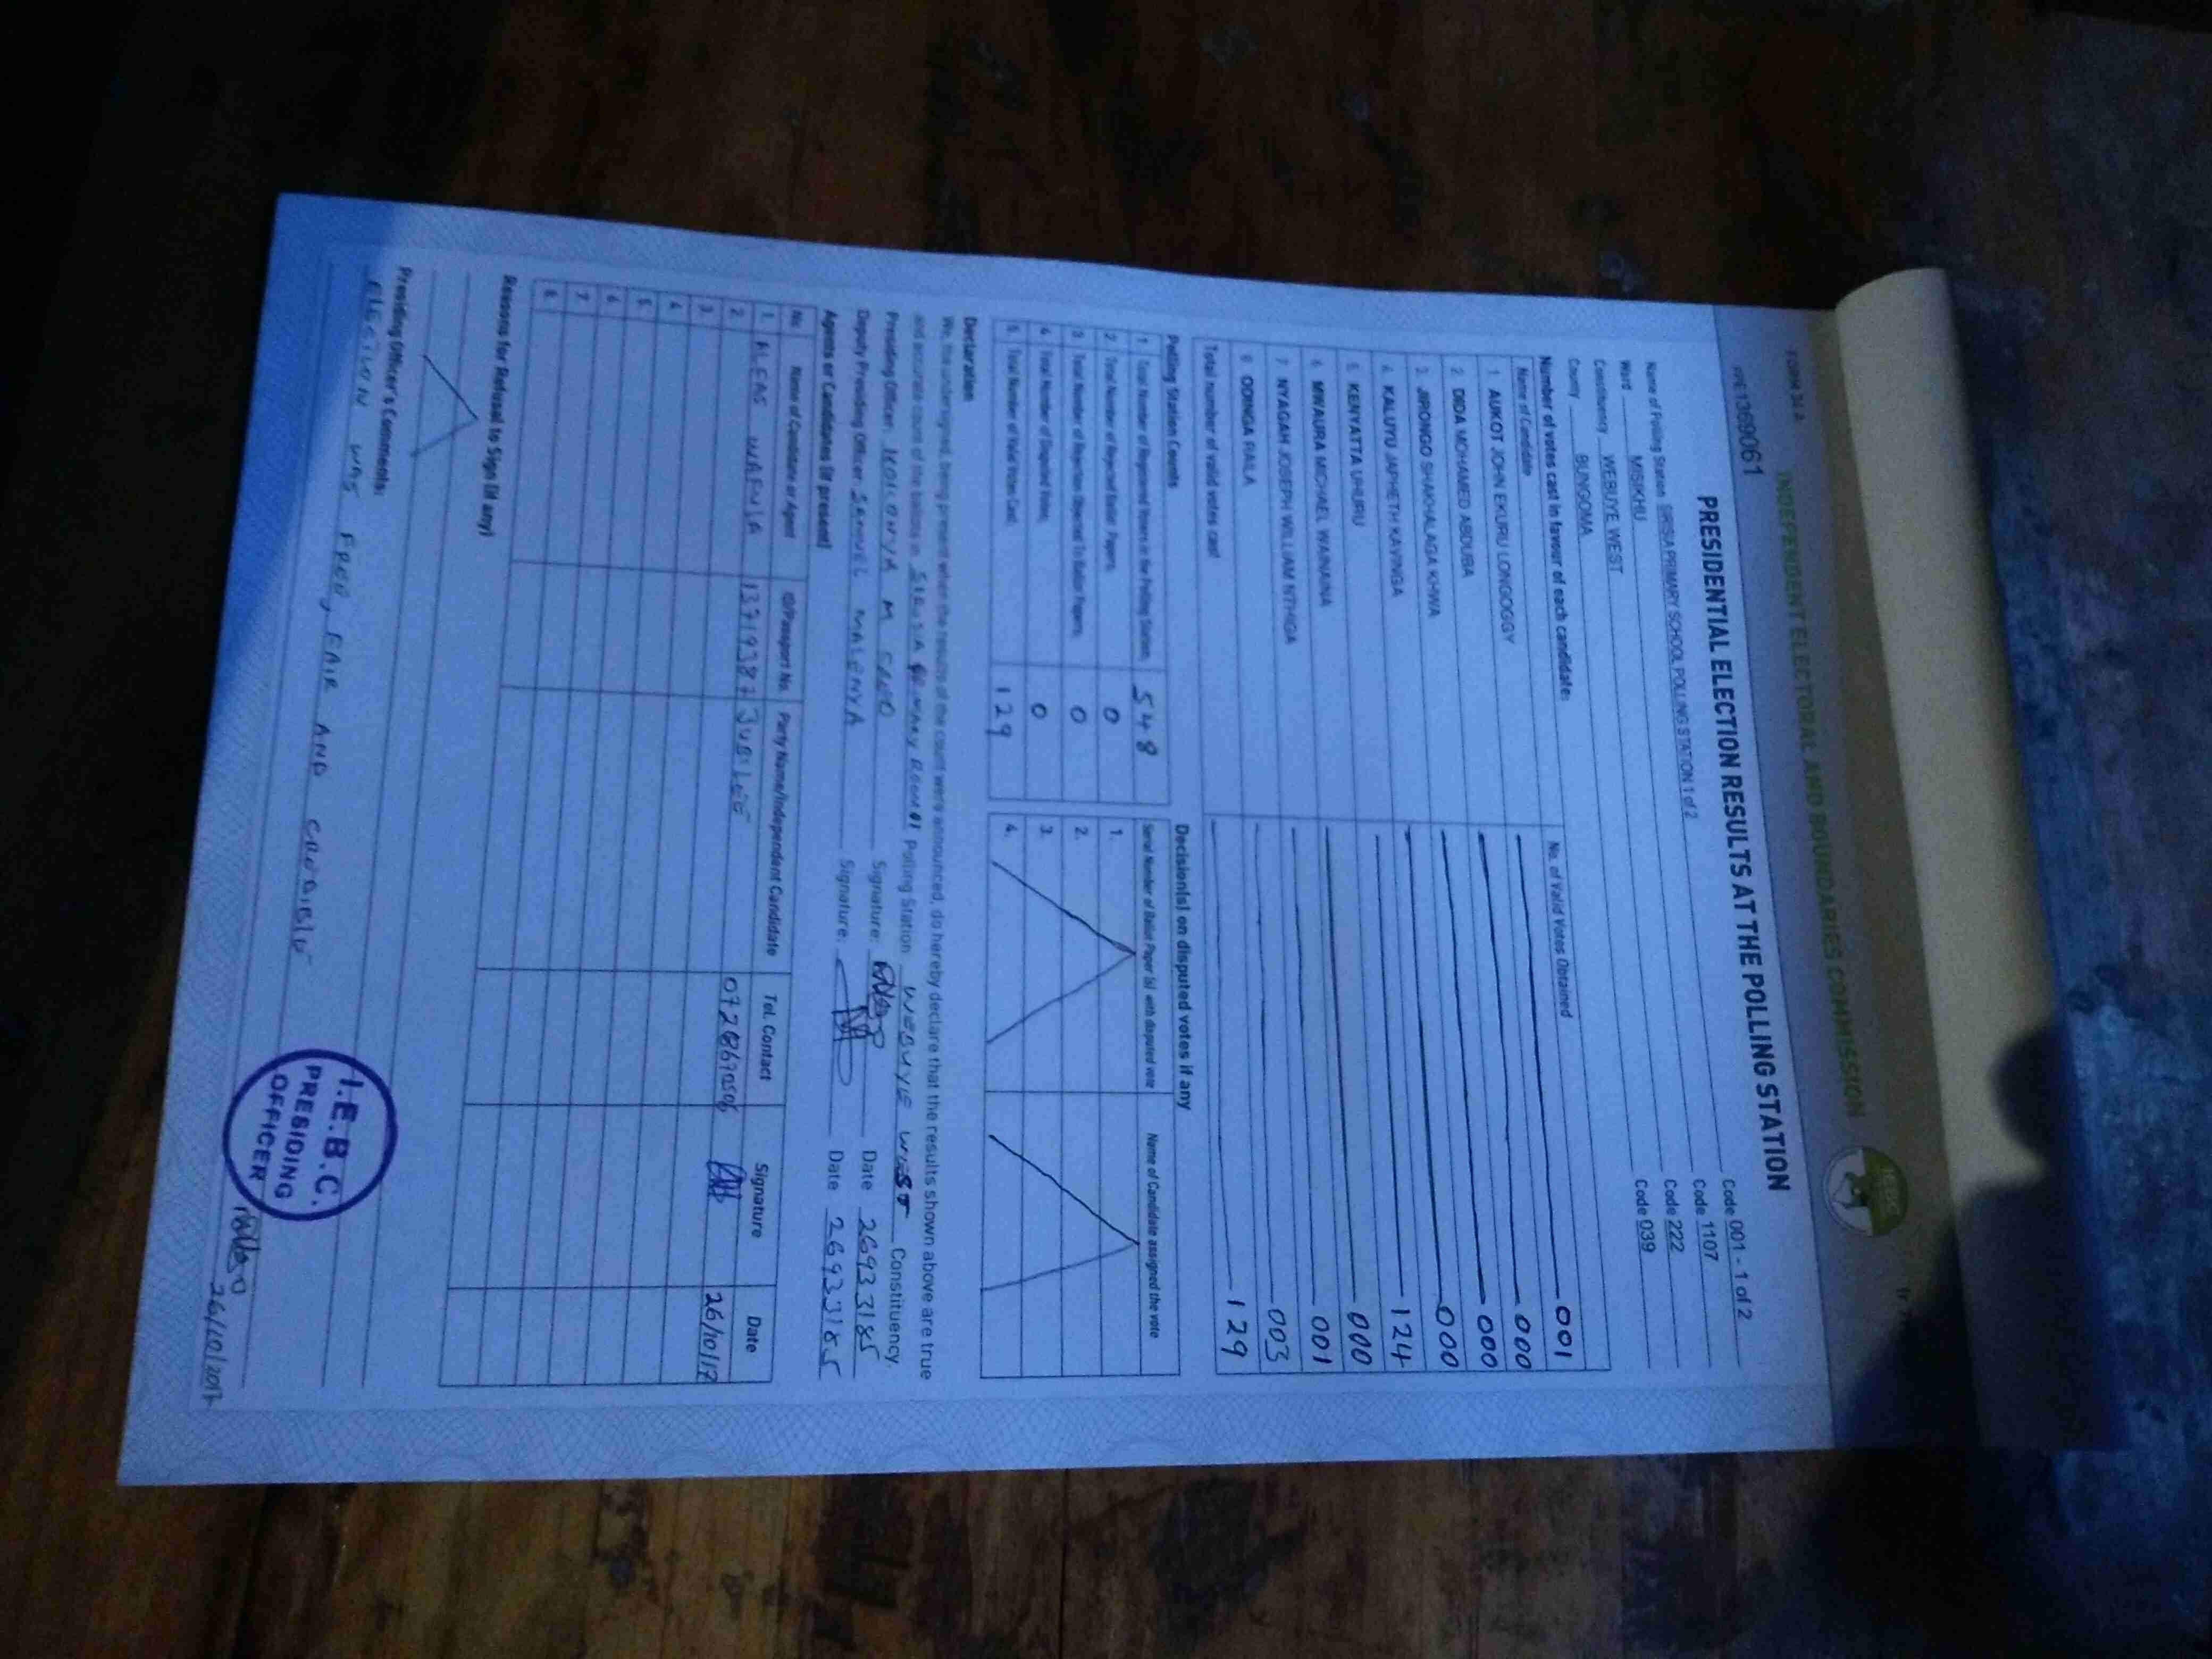 FORM 34 A
INDEPENDENT ELECTORAL AND BOUNDARIES COMMISSION
IEBC
PE1369061
PRESIDENTIAL ELECTION RESULTS AT THE POLLING STATION
Name of Polling Station SIRISIA PRIMARY SCHOOL POLLING STATION 1 of 2 Code 001 - 1 of 2
Ward MISIKHU Code 1107
Constituency WEBUYE WEST Code 222
County BUNGOMA Code 039
Number of votes cast in favour of each candidate:
Name of Candidate No. of Valid Votes Obtained
1. AUKOT JOHN EKURU LONGOGGY 001
2. DIDA MOHAMED ABDUBA 000
3. JIRONGO SHAKHALAGA KHWA 000
4. KALUYU JAPHETH KAVINGA 000
5. KENYATTA UHURU 124
6. MWAURA MICHAEL WAINAINA 000
7. NYAGAH JOSEPH WILLIAM NTHIGA 001
8. ODINGA RAILA 003
Total number of valid votes cast 129
Polling Station Counts
1. Total Number of Registered Voters in the Polling Station 548
2. Total Number of Rejected Ballot Papers 0
3. Total Number of Rejection Objected To Ballot Papers 0
4. Total Number of Disputed Votes 0
5. Total Number of Valid Votes Cast 129
Decision(s) on disputed votes if any
Serial Number of Ballot Paper (s) with disputed vote Name of Candidate assigned the vote
1.
2.
3.
4.
Declaration
We, the undersigned, being present when the results of the count were announced, do hereby declare that the results shown above are true
and accurate count of the ballots in Polling Station WEBUYE WEST Constituency.
Presiding Officer: Signature: Date 26933185
Deputy Presiding Officer SAMUEL Signature: Date 26933185
Agents or Candidates (if present)
No. Name of Candidate or Agent ID/Passport No. Party Name/Independent Candidate Tel. Contact Signature Date
1. WAFULA 13719387 JUBILEE 26/10/17
2.
3.
4.
5.
6.
7.
8.
Reasons for Refusal to Sign (if any)
Presiding Officer's Comments:
ELECTION WAS FREE, FAIR AND CREDIBLE
I.E.B.C.
PRESIDING
OFFICER
26/10/2017